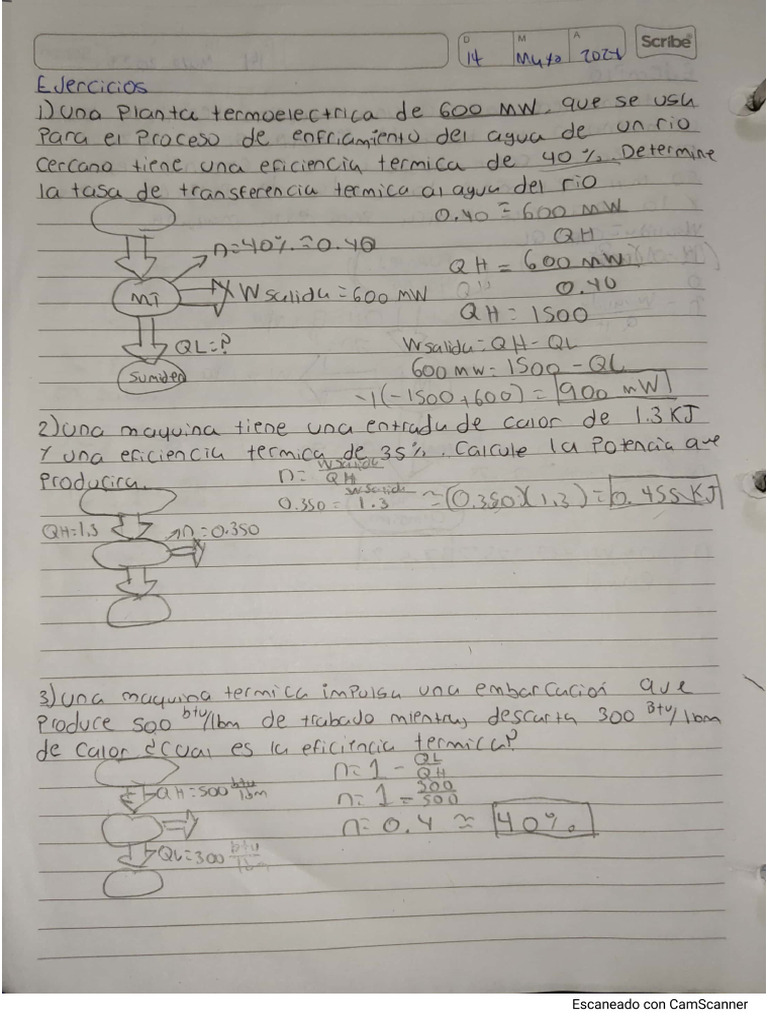 D M A
14 Mayo 2024 Scribe
Ejercicios
1) una Planta termoelectrica de 600 MW, que se usa
Para el Proceso de enfriamiento del agua de un rio
Cercano tiene una eficiencia termica de 40%. Determine
la tasa de transferencia termica al agua del rio
0.40 = 600 MW
QH
n=40% = 0.40
QH = 600 MW
0.40
MT
W salida = 600 MW
QH = 1500
QL=?
Wsalida = QH - QL
600 MW = 1500 - QL
Sumidero
-1(-1500+600) = 900 MW
2) una maquina tiene una entrada de calor de 1.3 KJ
Y una eficiencia termica de 35%. Calcule la Potencia que
Producira.
n = Wsalida
QH
0.350 = Wsalida
1.3
≈ (0.350)(1.3) = 0.455 KJ
QH=1.3
n=0.350
3) una maquina termica impulsa una embarcación que
Produce 500 btu/lbm de trabado mientras descarta 300 Btu/lbm
de Calor ¿Cual es la eficiencia termica?
n= 1 - QL
QH
QH=500 btu
lbm
n= 1 - 300
500
n= 0.4 ≈ 40%
QL=300 btu
lbm
Escaneado con CamScanner